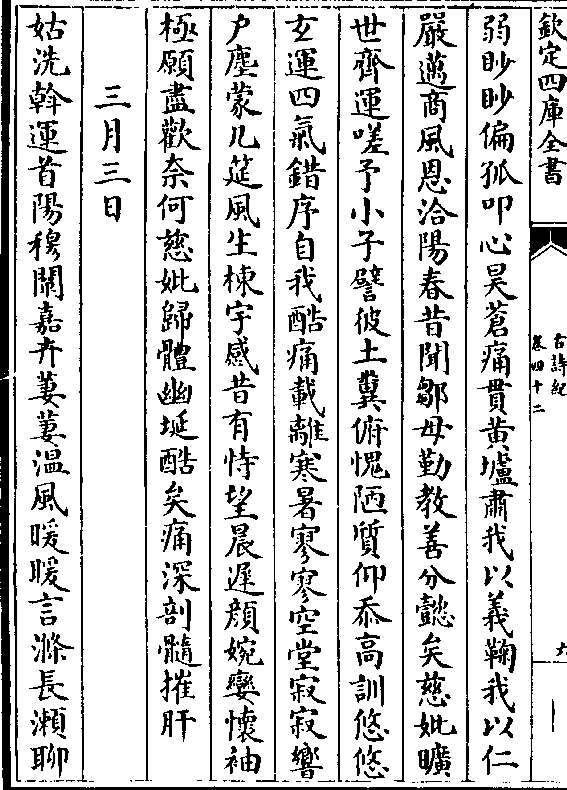 欽定四庫全書
古詩紀
卷四十二
六
弱眇眇偏孤叩心昊蒼痛貫黄壚肅我以義鞠我以仁
嚴邁商風恩洽陽春昔聞鄒母勤教善分懿矣慈妣曠
世齊運嗟予小子譬彼土糞俯愧陋質仰忝高訓悠悠
𤣥運四氣錯序自我酷痛載離寒暑寥寥空堂寂寂響
户塵蒙几筵風生棟宇感昔有恃望晨遲顔婉孌懷袖
極願盡歡奈何慈妣歸體幽埏酷矣痛深剖髓摧肝
三月三日
姑洗斡運首陽穆闡嘉卉萋萋溫風暖暖言滌長瀬聊